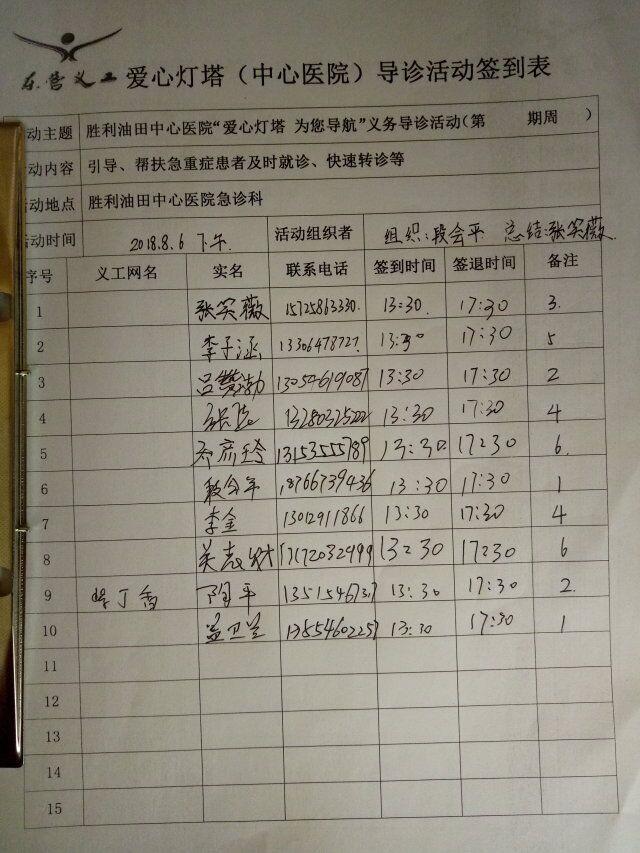 东营义工 爱心灯塔（中心医院）导诊活动签到表
动主题 胜利油田中心医院“爱心灯塔 为您导航”义务导诊活动（第 期周 ）
动内容 引导、帮扶急重症患者及时就诊、快速转诊等
活动地点 胜利油田中心医院急诊科
活动时间 2018.8.6 下午. 活动组织者 组织:段会平 总结:张笑薇
序号 义工网名 实名 联系电话 签到时间 签退时间 备注
1 张笑薇 15725863330. 13:30. 17:30 3.
2 李子涵 13306478727. 13:30 17:30 5
3 13054619087 13:30 17:30 2
4 13280325222 13:30 17:30 4
5 13153555789 13:30. 17:30 6.
6 段会平 18766739436 13:30 17:30 1
7 李金 13012911866 13:30 17:30 4
8 13:30 17:30 6
9 丁香 13:30 17:30 2.
10 盖卫兰 13554602257 13:30 17:30 1
11
12
13
14
15